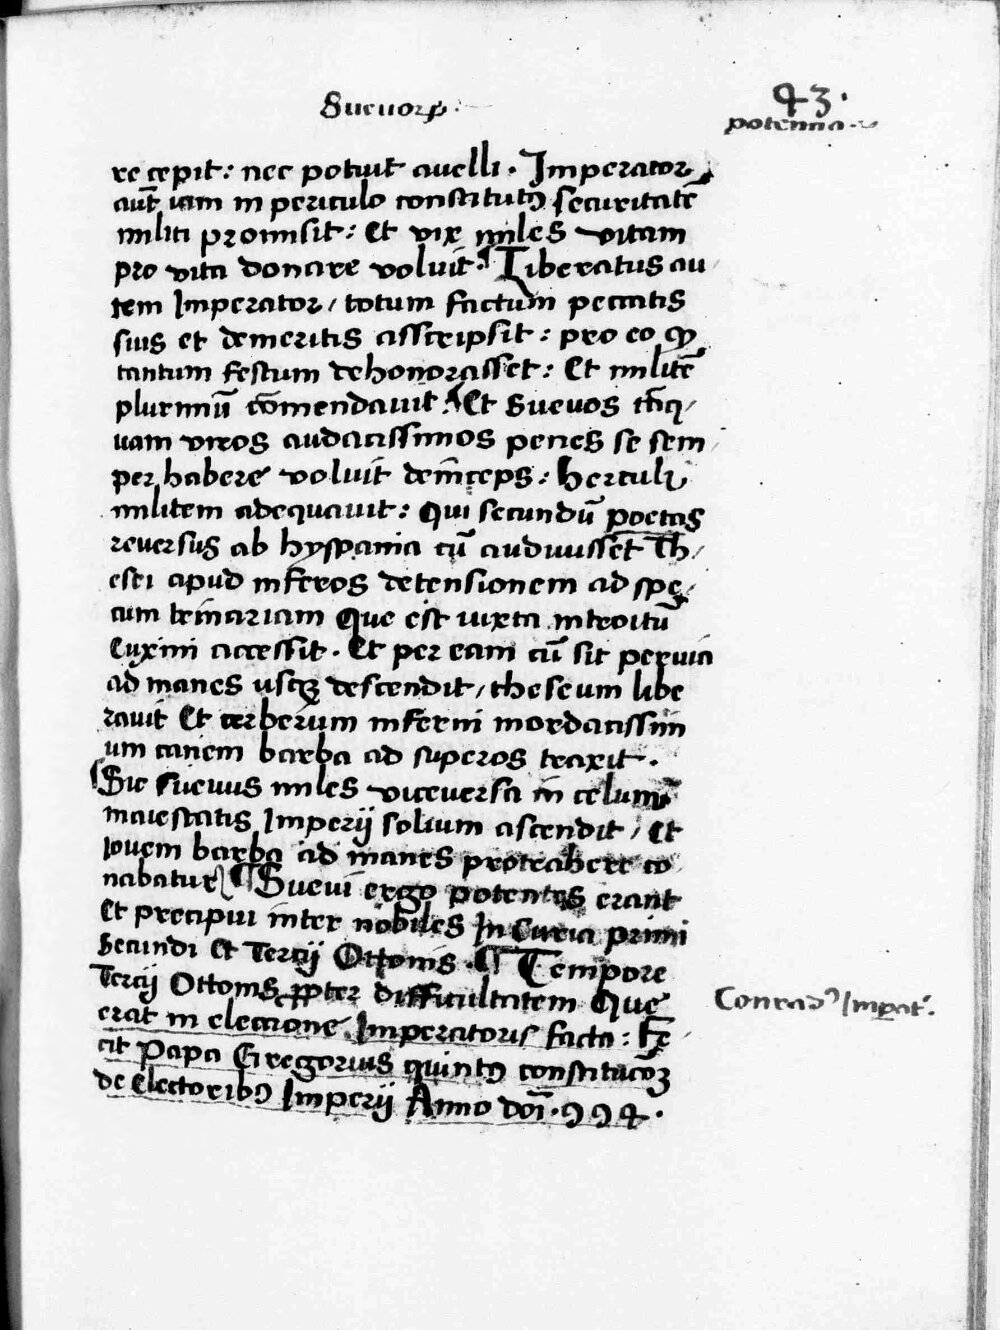 Sueuorꝝ
43.
potencia
re cepit: nec potuit auelli. Imperator
aut̄ iam in periculo constitutꝰ securitatē
militi promisit: Et vix miles vitam
pro vita donare voluit. ¶ Liberatus au
tem Imperator / totum factum peccatis
suis et demeritis asscripsit: pro eo ꝙ
tantum festum dehonorasset: Et militē
plurimū cōmendauit. ¶ Et Sueuos
uam viros audacissimos penes se sem
per habere voluit deinceps: herculi
militem adequauit: Qui secundū poetas
reuersus ab hyspania cū audiuisset Th/
esei apud inferos detensionem ad spe/
cum trinariam Que est iuxta introitū
Euxini accessit. Et per eam cū sit peruia
ad manes usqꝫ descendit / theseum libe
rauit Et cerberum inferni mordacissim
um canem barba ad superos traxit.
¶ Sic sueuus miles viceversa in celum
maiestatis Imperij solium ascendit / Et
iouem barba ad manes protrahere co
nabatur ¶ Sueui ergo potentes erant
Et precipui inter nobiles In Curia primi
Secundi Et Tercij Ottonis. ¶ Tempore
Tercij Ottonis ꝓpter difficultatem Que
erat in eleccione Imperatoris facta: Fe
cit Papa Gregorius quintꝰ constitucōꝫ
de Electoribꝰ Imperij Anno doī. 994.
Conradꝰ Impat'.